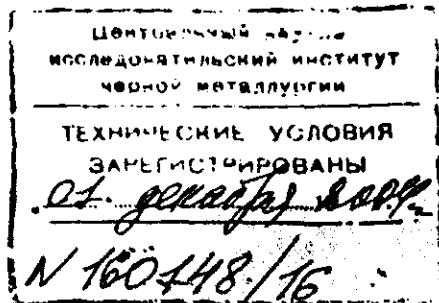 Центральный научно
исследовательский институт
черной металлургии
ТЕХНИЧЕСКИЕ УСЛОВИЯ
ЗАРЕГИСТРИРОВАНЫ
01. декабря
N 160748/16